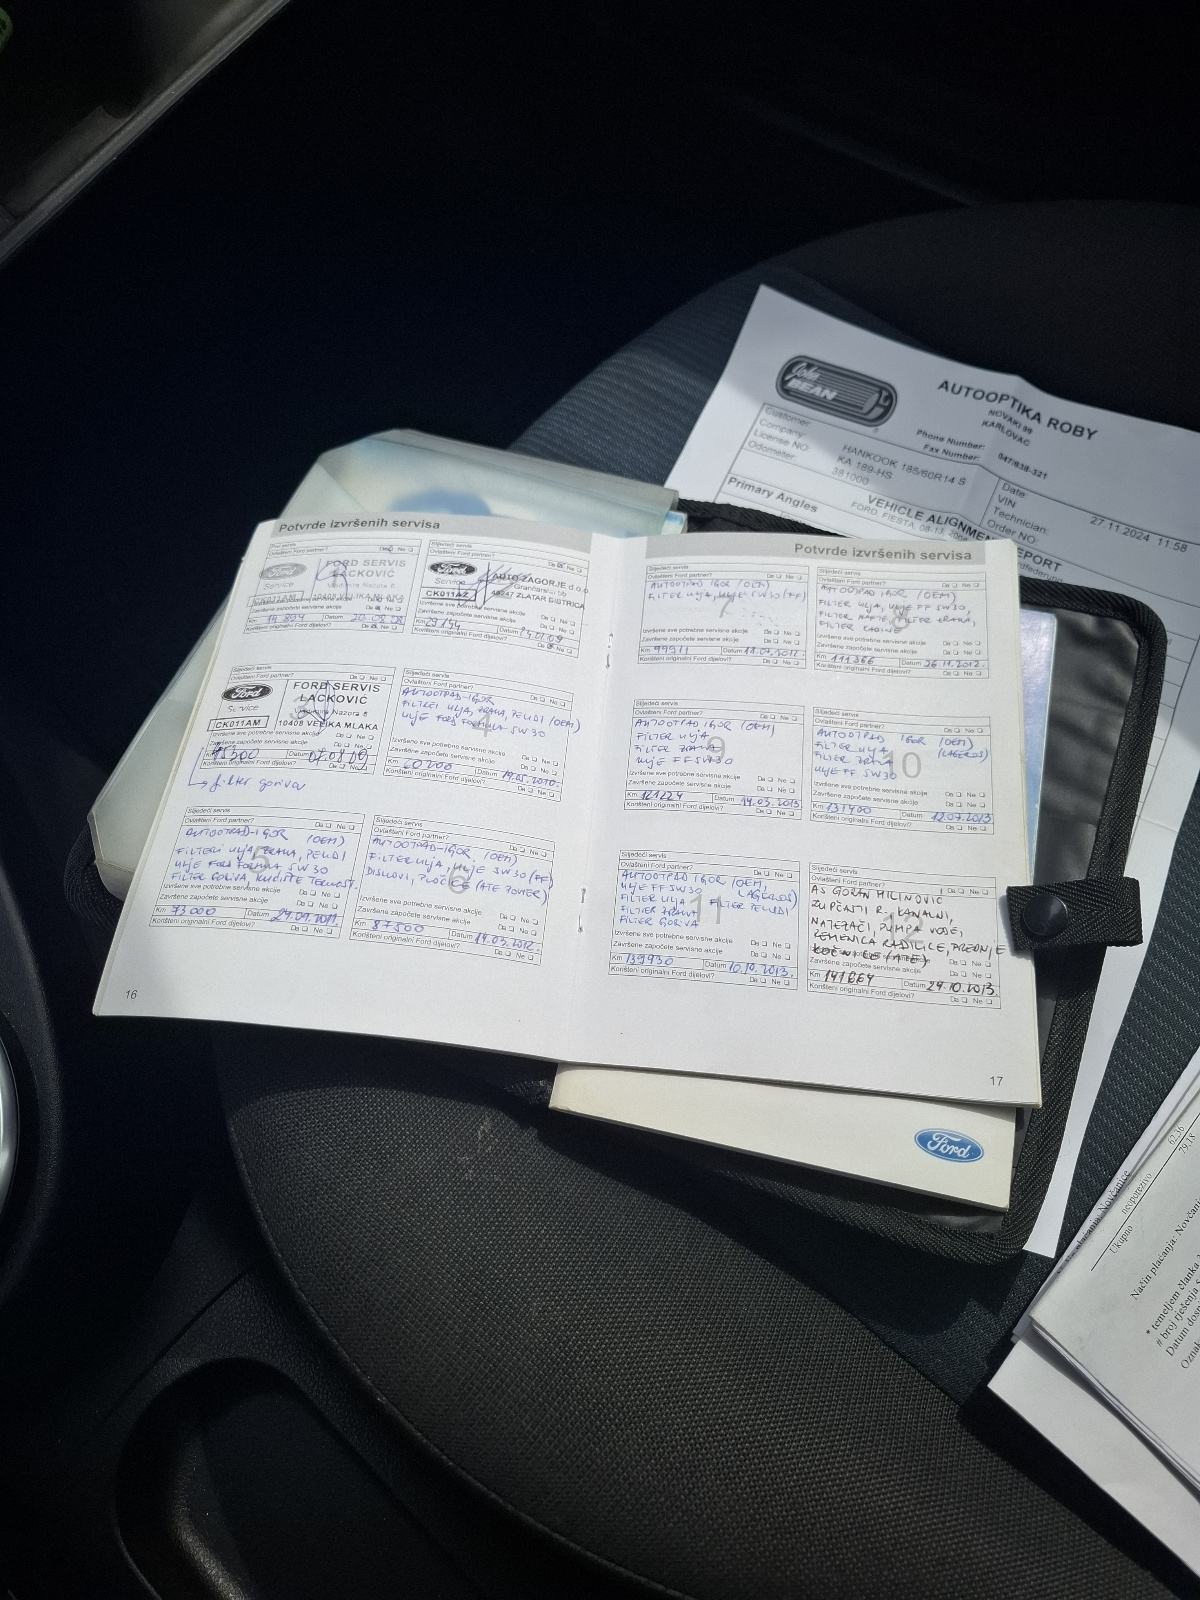 Potvrde izvršenih servisa
Prvi servis
Ovlašteni Ford partner? Da Ne
Service
FORD SERVIS
LACKOVIĆ
Vladimira Nazora 8
CK011AM 10408 VELIKA MLAKA
Završene započete servisne akcije Da Ne
Km 14 894 Datum 20.08.08
Korišteni originalni Ford dijelovi? Da Ne
Slijedeći servis
Ovlašteni Ford partner? Da Ne
Ford
Service
AUTO ZAGORJE d.o.o.
CK011AZ 49247 ZLATAR BISTRICA
Izvršene sve potrebne servisne akcije Da Ne
Završene započete servisne akcije Da Ne
Km 29194 Datum
Korišteni originalni Ford dijelovi? Da Ne
Slijedeći servis
Ovlašteni Ford partner? Da Ne
Ford
Service
FORD SERVIS
LACKOVIĆ
3
Vladimira Nazora 8
CK011AM 10408 VELIKA MLAKA
Izvršene sve potrebne servisne akcije Da Ne
Završene započete servisne akcije Da Ne
Km Datum 07.08.09
Korišteni originalni Ford dijelovi? Da Ne
filter goriva
Slijedeći servis
Ovlašteni Ford partner? Da Ne
AUTOOTPAD-IGOR
FILTERI ULJA, ZRAKA, PELUDI (OEM)
ULJE FORD FORMULA 5W30
4
Izvršene sve potrebne servisne akcije Da Ne
Završene započete servisne akcije Da Ne
Km 60200 Datum 19.05.2010.
Korišteni originalni Ford dijelovi? Da Ne
Slijedeći servis
Ovlašteni Ford partner? Da Ne
AUTOOTPAD-IGOR (OEM)
FILTERI ULJA, ZRAKA, PELUDI
ULJE FORD FORMULA 5W30
FILTER GORIVA, KUĆIŠTE TERMOST.
5
Izvršene sve potrebne servisne akcije Da Ne
Završene započete servisne akcije Da Ne
Km 73000 Datum 2011.
Korišteni originalni Ford dijelovi? Da Ne
Slijedeći servis
Ovlašteni Ford partner? Da Ne
AUTOOTPAD-IGOR (OEM)
FILTER ULJA, ULJE 5W30 (FF)
DISKOVI, PLOČICE (ATE POWER)
6
Izvršene sve potrebne servisne akcije Da Ne
Završene započete servisne akcije Da Ne
Km 87500 Datum 14.03.2012.
Korišteni originalni Ford dijelovi? Da Ne
16
Potvrde izvršenih servisa
Slijedeći servis
Ovlašteni Ford partner? Da Ne
AUTOOTPAD IGOR (OEM)
FILTER ULJA, ULJE 5W30 (FF)
7
Izvršene sve potrebne servisne akcije Da Ne
Završene započete servisne akcije Da Ne
Km 99911 Datum 11.07.2012.
Korišteni originalni Ford dijelovi? Da Ne
Slijedeći servis
Ovlašteni Ford partner? Da Ne
AUTOOTPAD IGOR (OEM)
FILTER ULJA, ULJE FF 5W30,
FILTER NAFTE, FILTER ZRAKA,
FILTER KABINE
8
Izvršene sve potrebne servisne akcije Da Ne
Završene započete servisne akcije Da Ne
Km 111366 Datum 26.11.2012.
Korišteni originalni Ford dijelovi? Da Ne
Slijedeći servis
Ovlašteni Ford partner? Da Ne
AUTOOTPAD IGOR (OEM)
FILTER ULJA
FILTER ZRAKA
ULJE FF 5W30
9
Izvršene sve potrebne servisne akcije Da Ne
Završene započete servisne akcije Da Ne
Km 121224 Datum 19.03.2013
Korišteni originalni Ford dijelovi? Da Ne
Slijedeći servis
Ovlašteni Ford partner? Da Ne
AUTOOTPAD IGOR (OEM)
FILTER ULJA (LAGEROS)
FILTER ZRAKA
ULJE FF 5W30
10
Izvršene sve potrebne servisne akcije Da Ne
Završene započete servisne akcije Da Ne
Km 131400 Datum 12.07.2013
Korišteni originalni Ford dijelovi? Da Ne
Slijedeći servis
Ovlašteni Ford partner? Da Ne
AUTOOTPAD IGOR (OEM,
ULJE FF 5W30 LAGEROS)
FILTER ULJA FILTER PELUDI
FILTER ZRAKA
FILTER GORIVA
11
Izvršene sve potrebne servisne akcije Da Ne
Završene započete servisne akcije Da Ne
Km 139930 Datum 10.10.2013.
Korišteni originalni Ford dijelovi? Da Ne
Slijedeći servis
Ovlašteni Ford partner? Da Ne
AS GORAN MILINOVIĆ
ZUPČASTI R., KANALNI,
NATEZAČI, PUMPA VODE,
REMENICA RADILICE, PREDNJE
KOČNICE (ATE)
12
Završene započete servisne akcije Da Ne
Km 141864 Datum 29.10.2013.
Korišteni originalni Ford dijelovi? Da Ne
17
Ford
John
BEAN
AUTOOPTIKA ROBY
NOVAKI 99
KARLOVAC
Phone Number: 047/638-321
Fax Number:
Customer:
Company: HANKOOK 185/60R14 S
License NO: KA 189-HS
Odometer: 381000
Date: 27.11.2024 11:58
VIN
Technician:
Order NO:
Primary Angles
VEHICLE ALIGNMENT REPORT
FORD, FIESTA, 08-13,
Način plaćanja: Novčanice
neoporezivo 62.36
Ukupno 29.18
Način plaćanja: Novč
* temeljem članka
# broj rješenja
Datum
Oznak